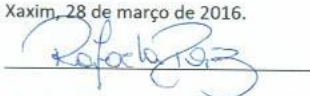 Xaxim, 28 de março de 2016.
Rafaela Paiz